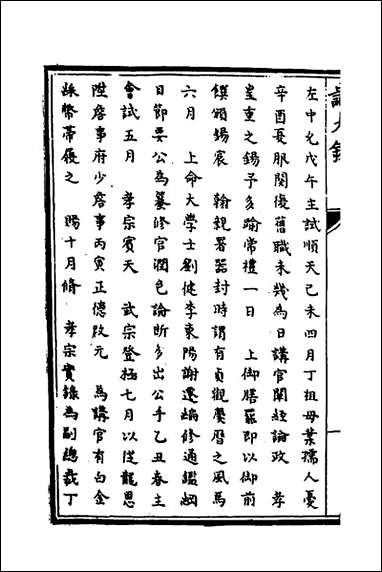 左中允戊午主試順天己未四月丁祖母葉孺人憂
辛酉憂服闋復舊職未幾為日講官闡經論政　孝
皇重之錫予多踰常禮一日　上御膳罷即以御前
饌頒錫宸　翰親署器封時謂有貞觀慶曆之風焉
六月　上命大學士劉健李東陽謝遷編修通鑑綱
目節要公為纂修官潤色論斷多出公手乙丑春主
會試五月　孝宗賓天　武宗登極七月以從龍恩
陞詹事府少詹事丙寅正德改元　為講官有白金
綵幣帶履之　賜十月修　孝宗實錄為副總裁丁